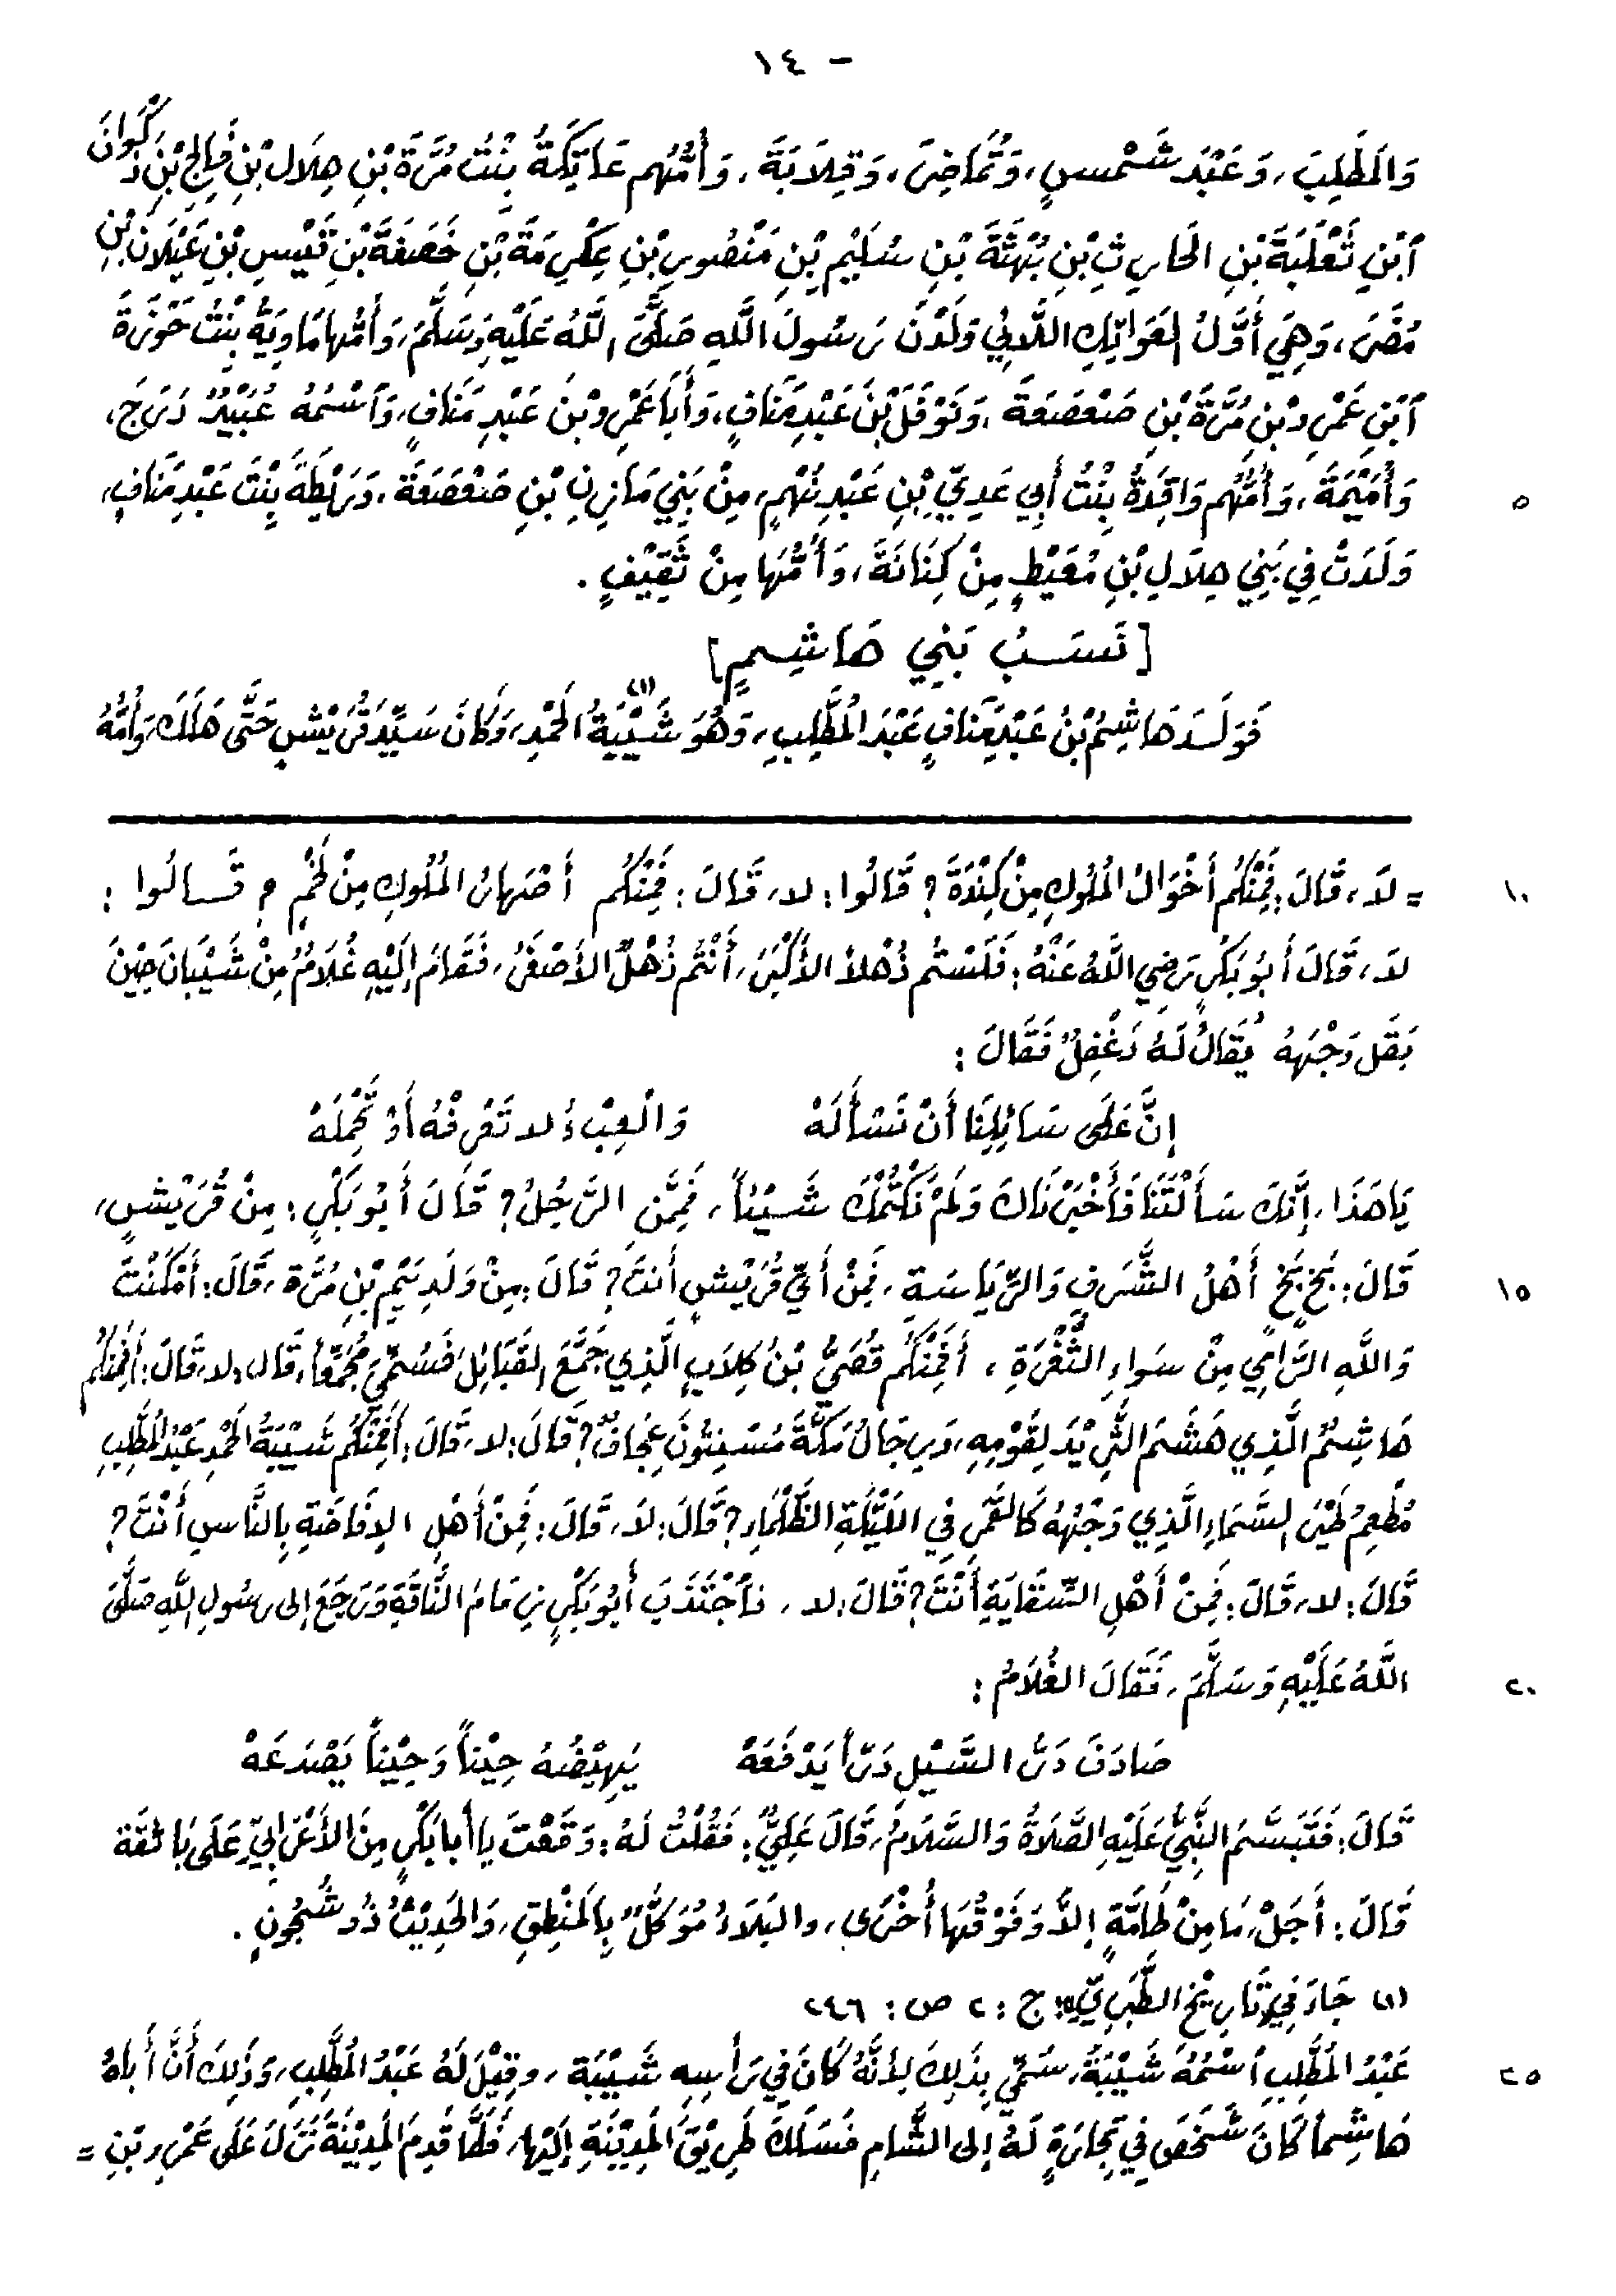 - ١٤
وَالمُطَّلِبَ، وَعَبْدَ شَمْسٍ، وَتُمَاضِرَ، وَقِلَابَةَ، وَأُمُّهُم عَاتِكَةُ بِنْتُ مُرَّةَ بْنِ هِلَالِ بْنِ فَالِجِ بْنِ ذَكْوَانَ
ٱبْنِ ثَعْلَبَةَ بْنِ الحَارِثِ بْنِ بُهْثَةَ بْنِ سُلَيْمِ بْنِ مَنْصُورِ بْنِ عِكْرِمَةَ بْنِ خَصَفَةَ بْنِ قَيْسِ بْنِ عَيْلَانَ بْنِ
مُضَرَ، وَهِيَ أَوَّلُ العَوَاتِكِ اللَّاتِي وَلَدْنَ رَسُولَ اللَّهِ صَلَّى اللَّهُ عَلَيْهِ وَسَلَّمَ، وَأُمُّهَا مَاوِيَةُ بِنْتُ حَوْزَةَ
ٱبْنِ عَمْرِو بْنِ مُرَّةَ بْنِ صَعْصَعَةَ، وَنَوْفَلَ بْنَ عَبْدِ مَنَافٍ، وَأَبَا عَمْرِو بْنَ عَبْدِ مَنَافٍ، وَٱسْمُهُ عُبَيْدٌ دَرَجَ،
وَأُمَيْمَةَ، وَأُمُّهُم وَاقِدَةُ بِنْتُ أَبِي عَدِيِّ بْنِ عَبْدِ نُهْمٍ، مِنْ بَنِي مَازِنِ بْنِ صَعْصَعَةَ، وَرَيْطَةَ بِنْتَ عَبْدِ مَنَافٍ، ٥
وَلَدَتْ فِي بَنِي هِلَالِ بْنِ مُعَيْطٍ مِنْ كِنَانَةَ، وَأُمُّهَا مِنْ ثَقِيْفٍ.
[نَسَبُ بَنِي هَاشِمٍ]
فَوَلَدَ هَاشِمُ بْنُ عَبْدِ مَنَافٍ عَبْدَ المُطَّلِبِ، وَهُوَ شَيْبَةُ الحَمْدِ(١)، وَكَانَ سَيِّدَ قُرَيْشٍ حَتَّى هَلَكَ، وَأُمُّهُ
= لَا، قَالَ: فَمِنْكُم أَخْوَالُ المُلُوكِ مِنْ كِنْدَةَ؟ قَالُوا: لا، قَالَ: فَمِنْكُم أَصْهَارُ المُلُوكِ مِنْ لَخْمٍ؟ قَالُوا: ١٠
لا، قَالَ أَبُو بَكْرٍ رَضِي اللَّهُ عَنْهُ: فَلَسْتُم ذُهْلاً الأَكْبَرَ، أَنْتُم ذُهْلٌ الأَصْغَرُ، فَقَامَ إِلَيْهِ غُلَامٌ مِنْ شَيْبَانَ حِيْنَ
بَقَلَ وَجْهُهُ يُقَالُ لَهُ دَغْفَلٌ فَقَالَ:
إِنَّ عَلَى سَائِلِنَا أَنْ نَسْأَلَهْ وَالْعِبْءُ لا تَعْرِفُهُ أَوْ تَحْمِلَهْ
يَا هَذَا، إِنَّكَ سَأَلْتَنَا فَأَخْبَرْنَاكَ وَلَمْ نَكْتُمْكَ شَيْئاً، فَمِمَّنِ الرَّجُلُ؟ قَالَ أَبُو بَكْرٍ: مِنْ قُرَيْشٍ،
قَالَ: بَخٍ بَخٍ أَهْلُ الشَّرَفِ وَالرِّيَاسَةِ، فَمِنْ أَيِّ قُرَيْشٍ أَنتَ؟ قَالَ: مِنْ وَلَدِ تَيْمِ بْنِ مُرَّةَ، قَالَ: أَمْكَنْتَ ١٥
وَاللَّهِ الرَّامِي مِنْ سَوَاءِ الثُّغْرَةِ، أَفَمِنْكُم قُصَيُّ بْنُ كِلَابٍ الَّذِي جَمَّعَ القَبَائِلَ فَسُمِّيَ مُجَمِّعاً، قَالَ: لا، قَالَ: أَفَمِنْكُم
هَاشِمٌ الَّذِي هَشَمَ الثَّرِيْدَ لِقَوْمِهِ، وَرِجَالُ مَكَّةَ مُسْنِتُونَ عِجَافٌ؟ قَالَ: لا، قَالَ: أَفَمِنْكُم شَيْبَةُ الحَمْدِ عَبْدُ المُطَّلِبِ
مُطْعِمُ طَيْرِ السَّمَاءِ الَّذِي وَجْهُهُ كَالقَمَرِ فِي اللَّيْلَةِ الظَّلْمَاءِ؟ قَالَ: لَا، قَالَ: فَمِنْ أَهْلِ الإِفَاضَةِ بِالنَّاسِ أَنْتَ؟
قَالَ: لا، قَالَ: فَمِنْ أَهْلِ السِّقَايَةِ أَنْتَ؟ قَالَ: لا، فَٱجْتَذَبَ أَبُو بَكْرٍ زِمَامَ النَّاقَةِ وَرَجَعَ إِلى رَسُولِ اللَّهِ صَلَّى
اللَّهُ عَلَيْهِ وَسَلَّمَ، فَقَالَ الغُلَامُ: ٢٠
صَادَفَ دَرُّ السَّيْلِ دَرّاً يَدْفَعُهْ يَهِيْضُهُ حِيْناً وَحِيْناً يَصْدَعُهْ
قَالَ: فَتَبَسَّمَ النَّبِيُّ عَلَيْهِ الصَّلَاةُ وَالسَّلَامُ، قَالَ عَلِيٌّ: فَقُلْتُ لَهُ: وَقَعْتَ يا أبا بَكْرٍ مِنَ الأَعْرَابِيِّ عَلَى بَائِقَة
قَالَ: أَجَلْ، مَا مِنْ طَامَّةٍ إِلاَّ وَفَوْقَهَا أُخْرَى، والبَلَاءُ مُوَكَّلٌ بِالمَنْطِقِ، وَالحَدِيْثُ ذُو شُجُونٍ.
(١) جَاءَ فِي تَارِيْخِ الطَّبَرِيِّ: ج: ٢ ص: ٢٤٦
عَبْدُ المُطَّلِبِ ٱسْمُهُ شَيْبَةُ، سُمِّيَ بِذَلِكَ لِأَنَّهُ كَانَ فِي رَأْسِهِ شَيْبَة، وقِيْلَ لَهُ عَبْدُ المُطَّلِبِ، وَذَلِكَ أَنَّ أَبَاهُ ٢٥
هَاشِماً كَانَ شَخَصَ فِي تِجَارَةٍ لَهُ إِلى الشَّامِ فَسَلَكَ طَرِيْقَ المَدِيْنَةِ إِلَيْهَا، فَلَمَّا قَدِمَ المَدِيْنَةَ نَزَلَ عَلَى عَمْرِو بْنِ =